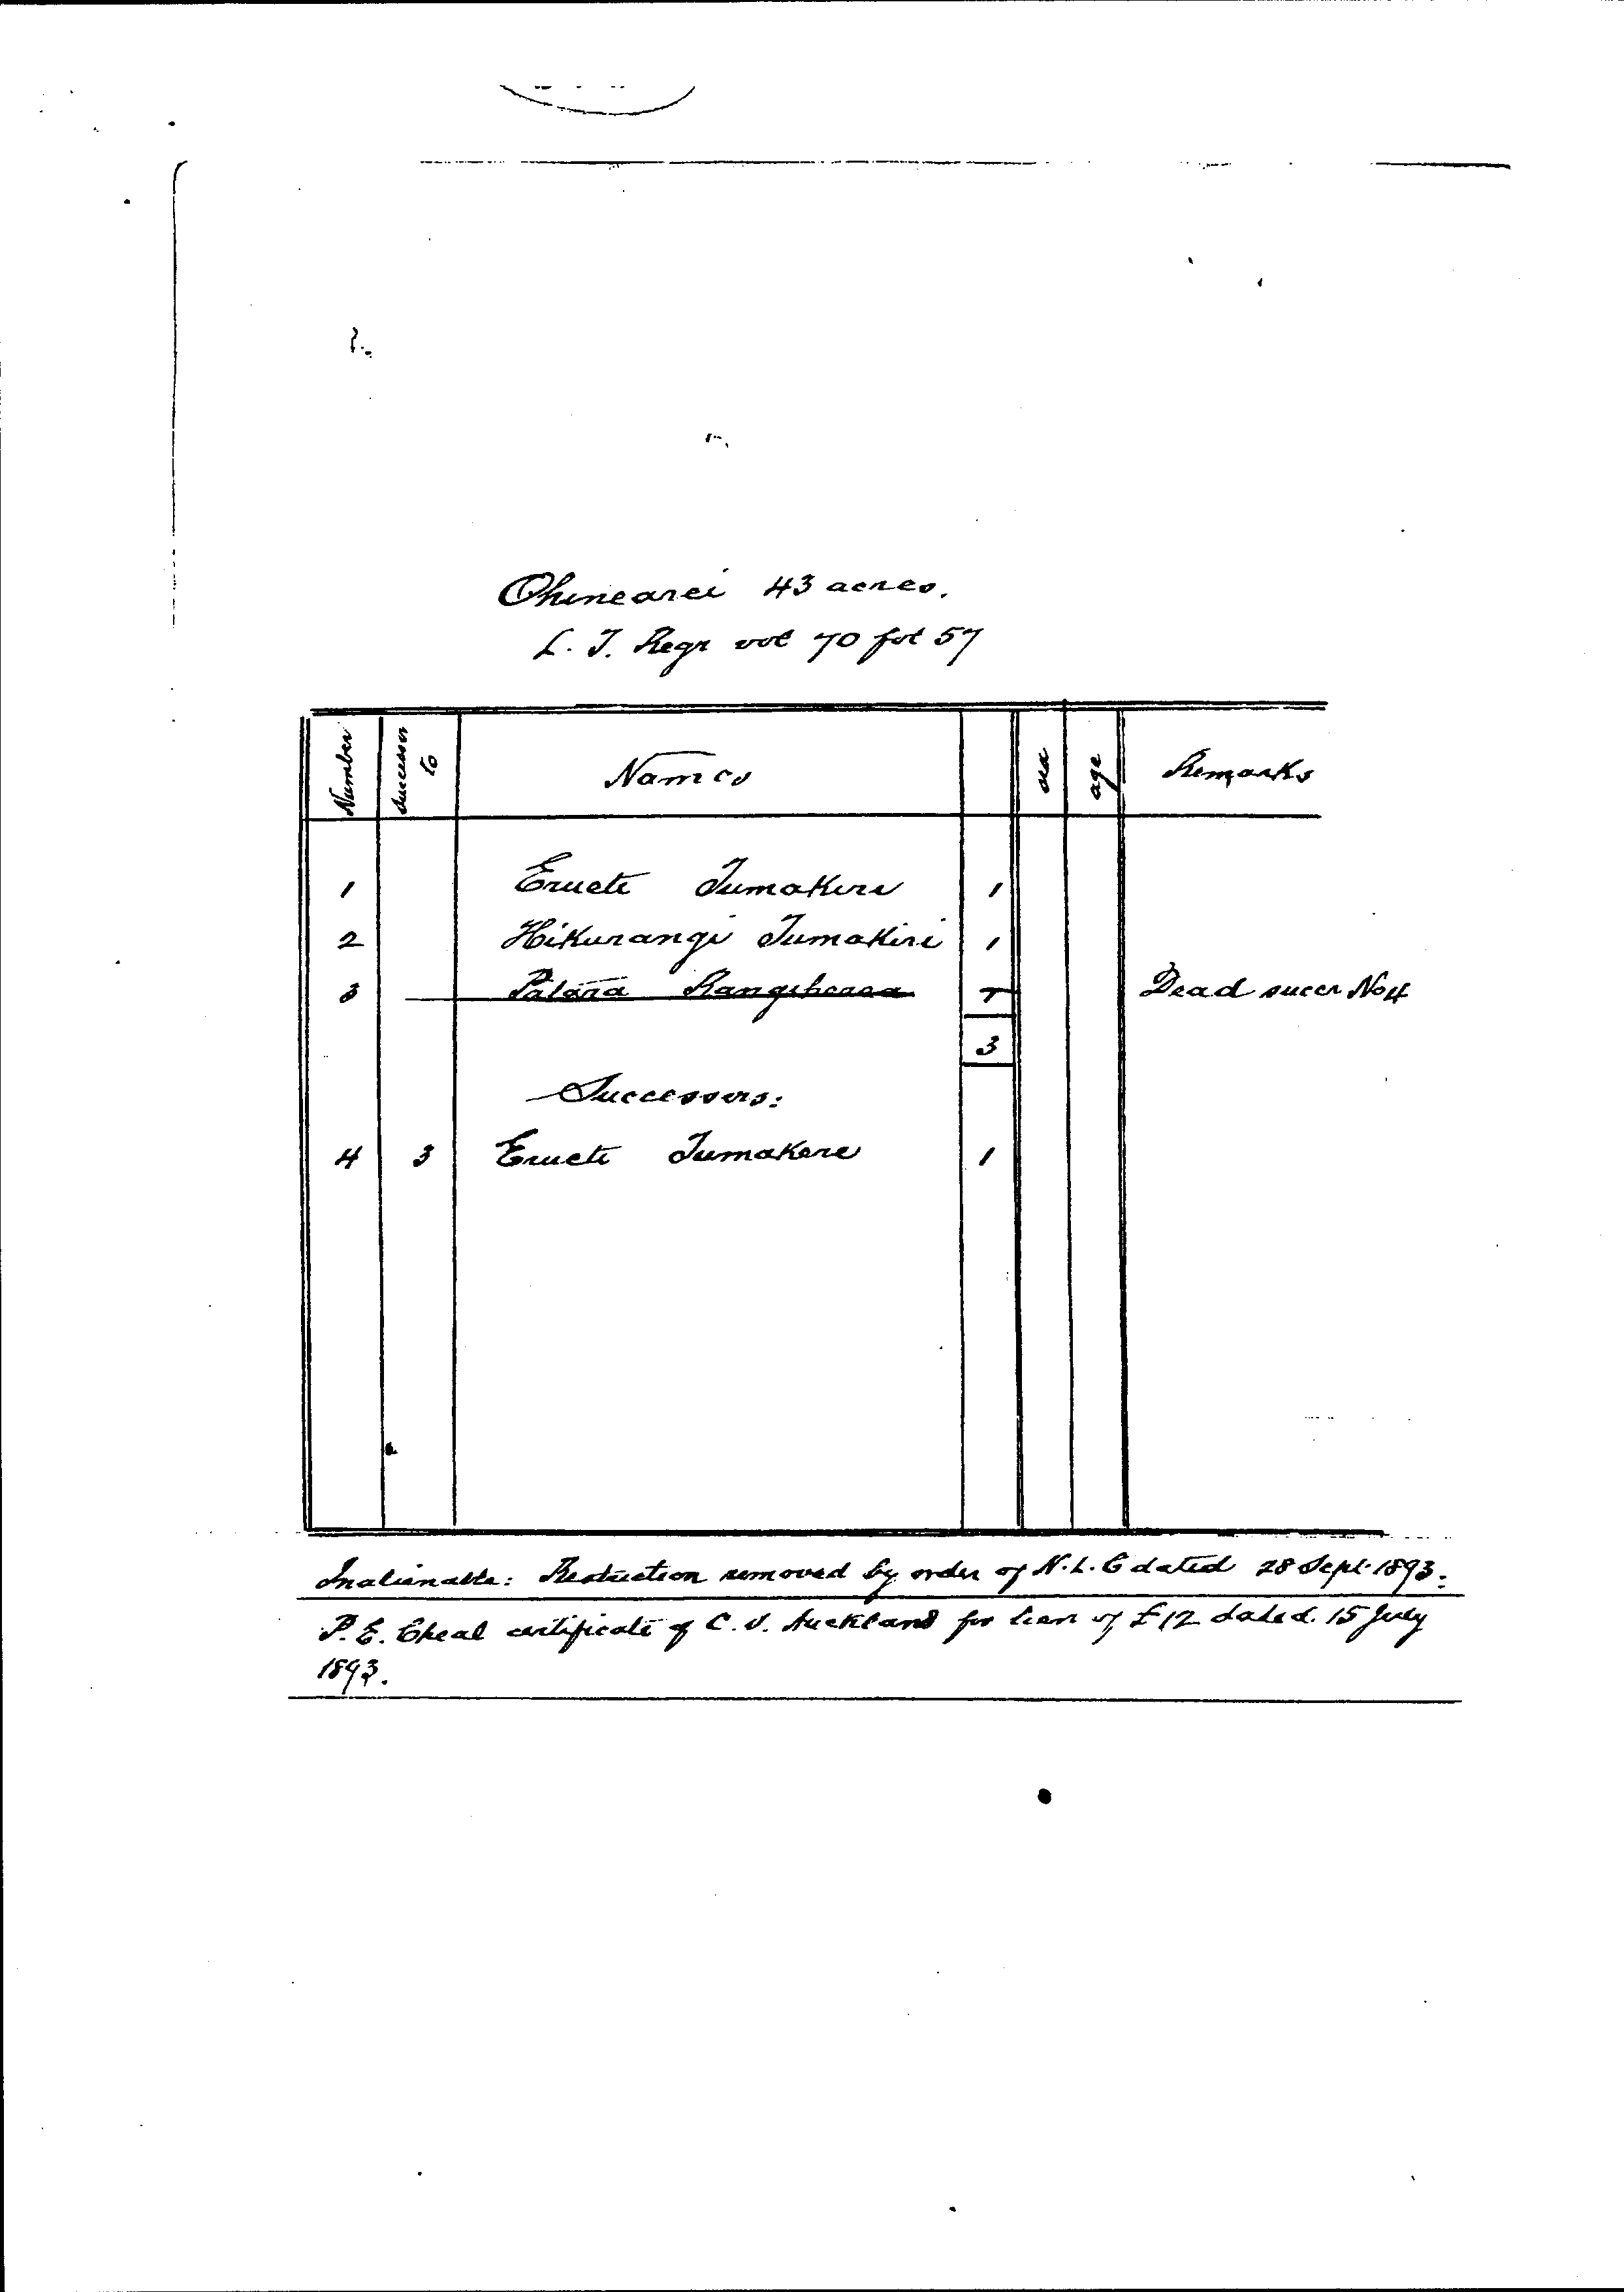 Ohinearei 43 acres.
L. T. Regr vol 70 fol 57
Number successor to Names sex age Remarks
1 Erueti Tumakere 1
2 Hikurangi Tumakiri 1
3 Patara 1 Dead succr No 4
3
Successors:
4 3 Erueti Tumakere 1
Inalienable: Restriction removed by order of N.L.C dated 28 Sept. 1893.
P. E. Cheal certificate of C. S. Auckland for lien of £12 dated 15 July
1893.